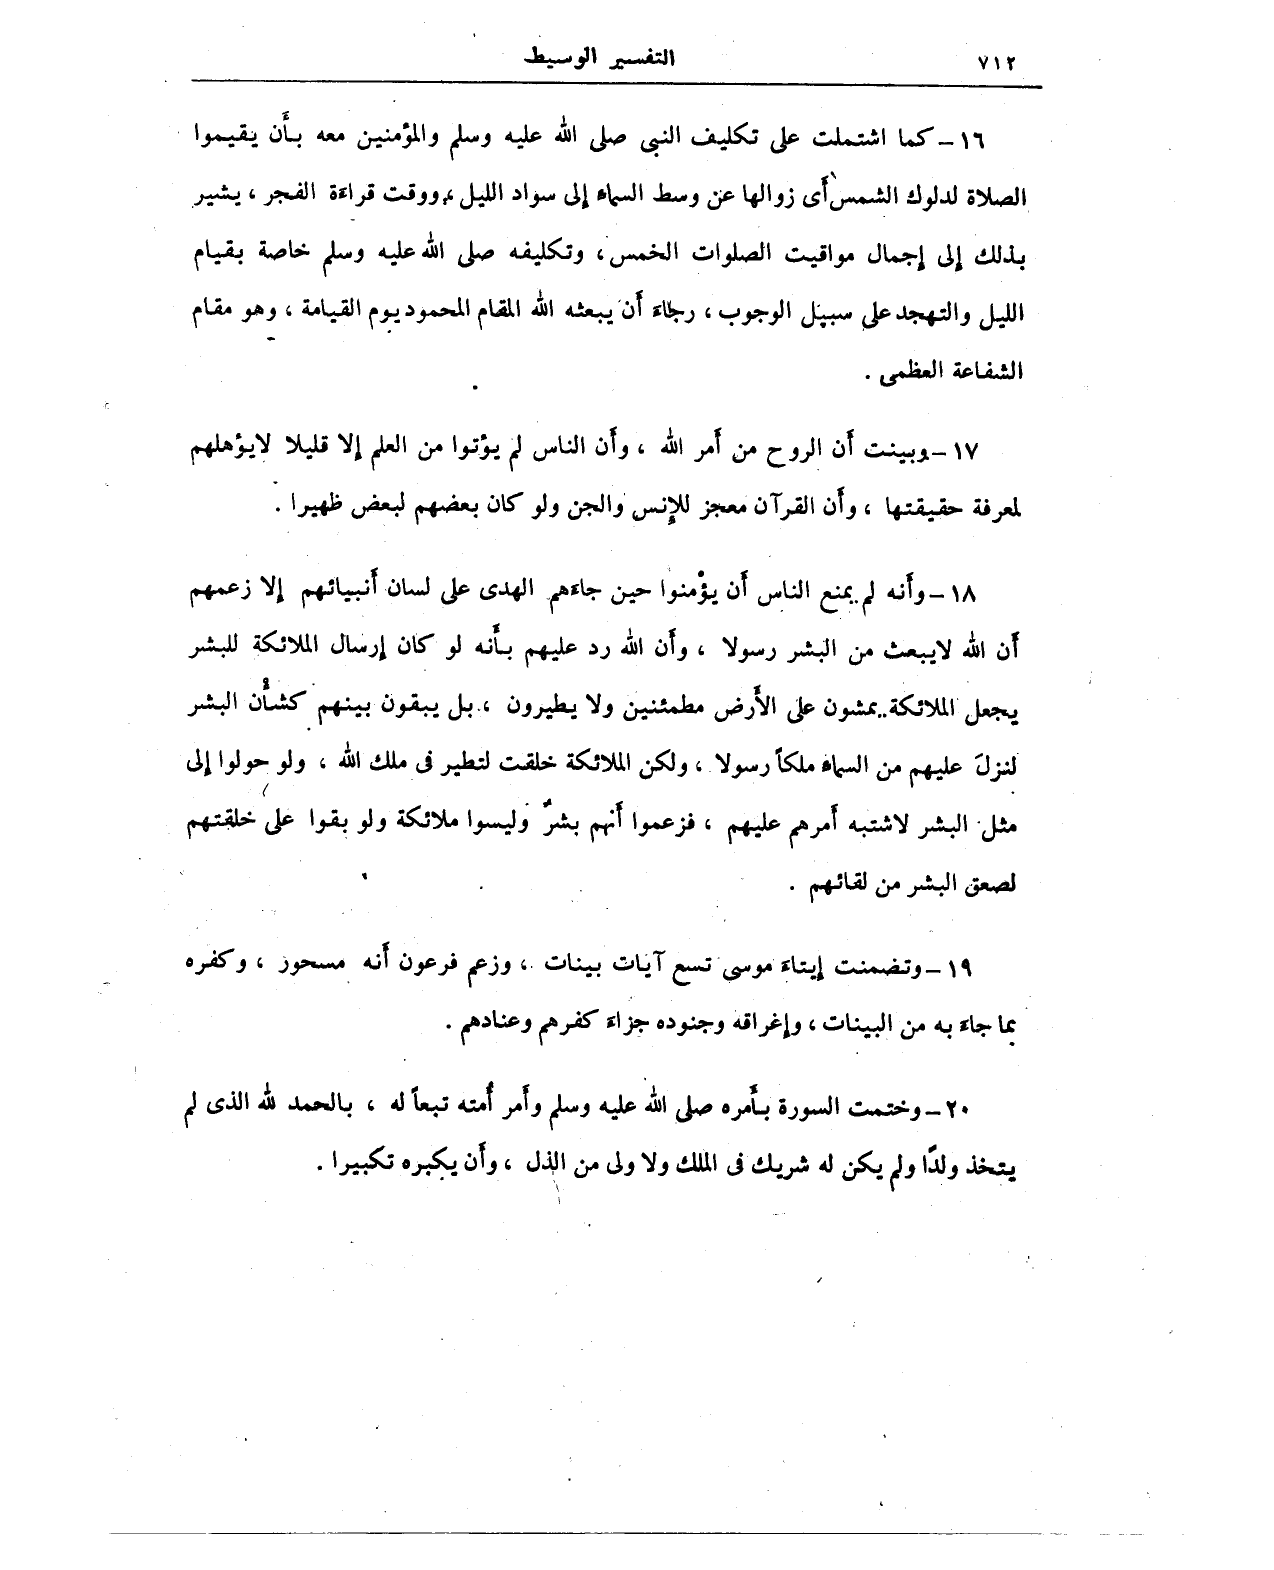 ٧١٢ التفسير الوسيط
١٦ – كما اشتملت على تكليف النبى صلى الله عليه وسلم والمؤمنين معه بأن يقيموا
الصلاة لدلوك الشمس أى زوالها عن وسط السماء إلى سواد الليل ، ووقت قراءة الفجر ، يشير
بذلك إلى إجمال مواقيت الصلوات الخمس ، وتكليفه صلى الله عليه وسلم خاصة بقيام
الليل والتهجد على سبيل الوجوب ، رجاءَ أن يبعثه الله المقام المحمود يوم القيامة ، وهو مقام
الشفاعة العظمى .
١٧ – وبينت أن الروح من أمر الله ، وأن الناس لم يؤتوا من العلم إلا قليلا لايؤهلهم
لمعرفة حقيقتها ، وأن القرآن معجز للإنس والجن ولو كان بعضهم لبعض ظهيرا .
١٨ – وأنه لم يمنع الناس أن يؤمنوا حين جاءهم الهدى على لسان أنبيائهم إلا زعمهم
أن الله لايبعث من البشر رسولا ، وأن الله رد عليهم بأنه لو كان إرسال الملائكة للبشر
يجعل الملائكة يمشون على الأرض مطمئنين ولا يطيرون ، بل يبقون بينهم كشأن البشر
لنزلَ عليهم من السماء ملكاً رسولا ، ولكن الملائكة خلقت لتطير فى ملك الله ، ولو حولوا إلى
مثل البشر لاشتبه أمرهم عليهم ، فزعموا أنهم بشرٌ وليسوا ملائكة ولو بقوا على خلقتهم
لصعق البشر من لقائهم .
١٩ – وتضمنت إيتاءَ موسى تسع آيات بينات ، وزعم فرعون أنه مسحور ، وكفره
بما جاءَ به من البينات ، وإغراقه وجنوده جزاءَ كفرهم وعنادهم .
٢٠ – وختمت السورة بأمره صلى الله عليه وسلم وأمر أُمته تبعاً له ، بالحمد لله الذى لم
يتخذ ولدًا ولم يكن له شريك فى الملك ولا ولى من الذل ، وأن يكبره تكبيرا .